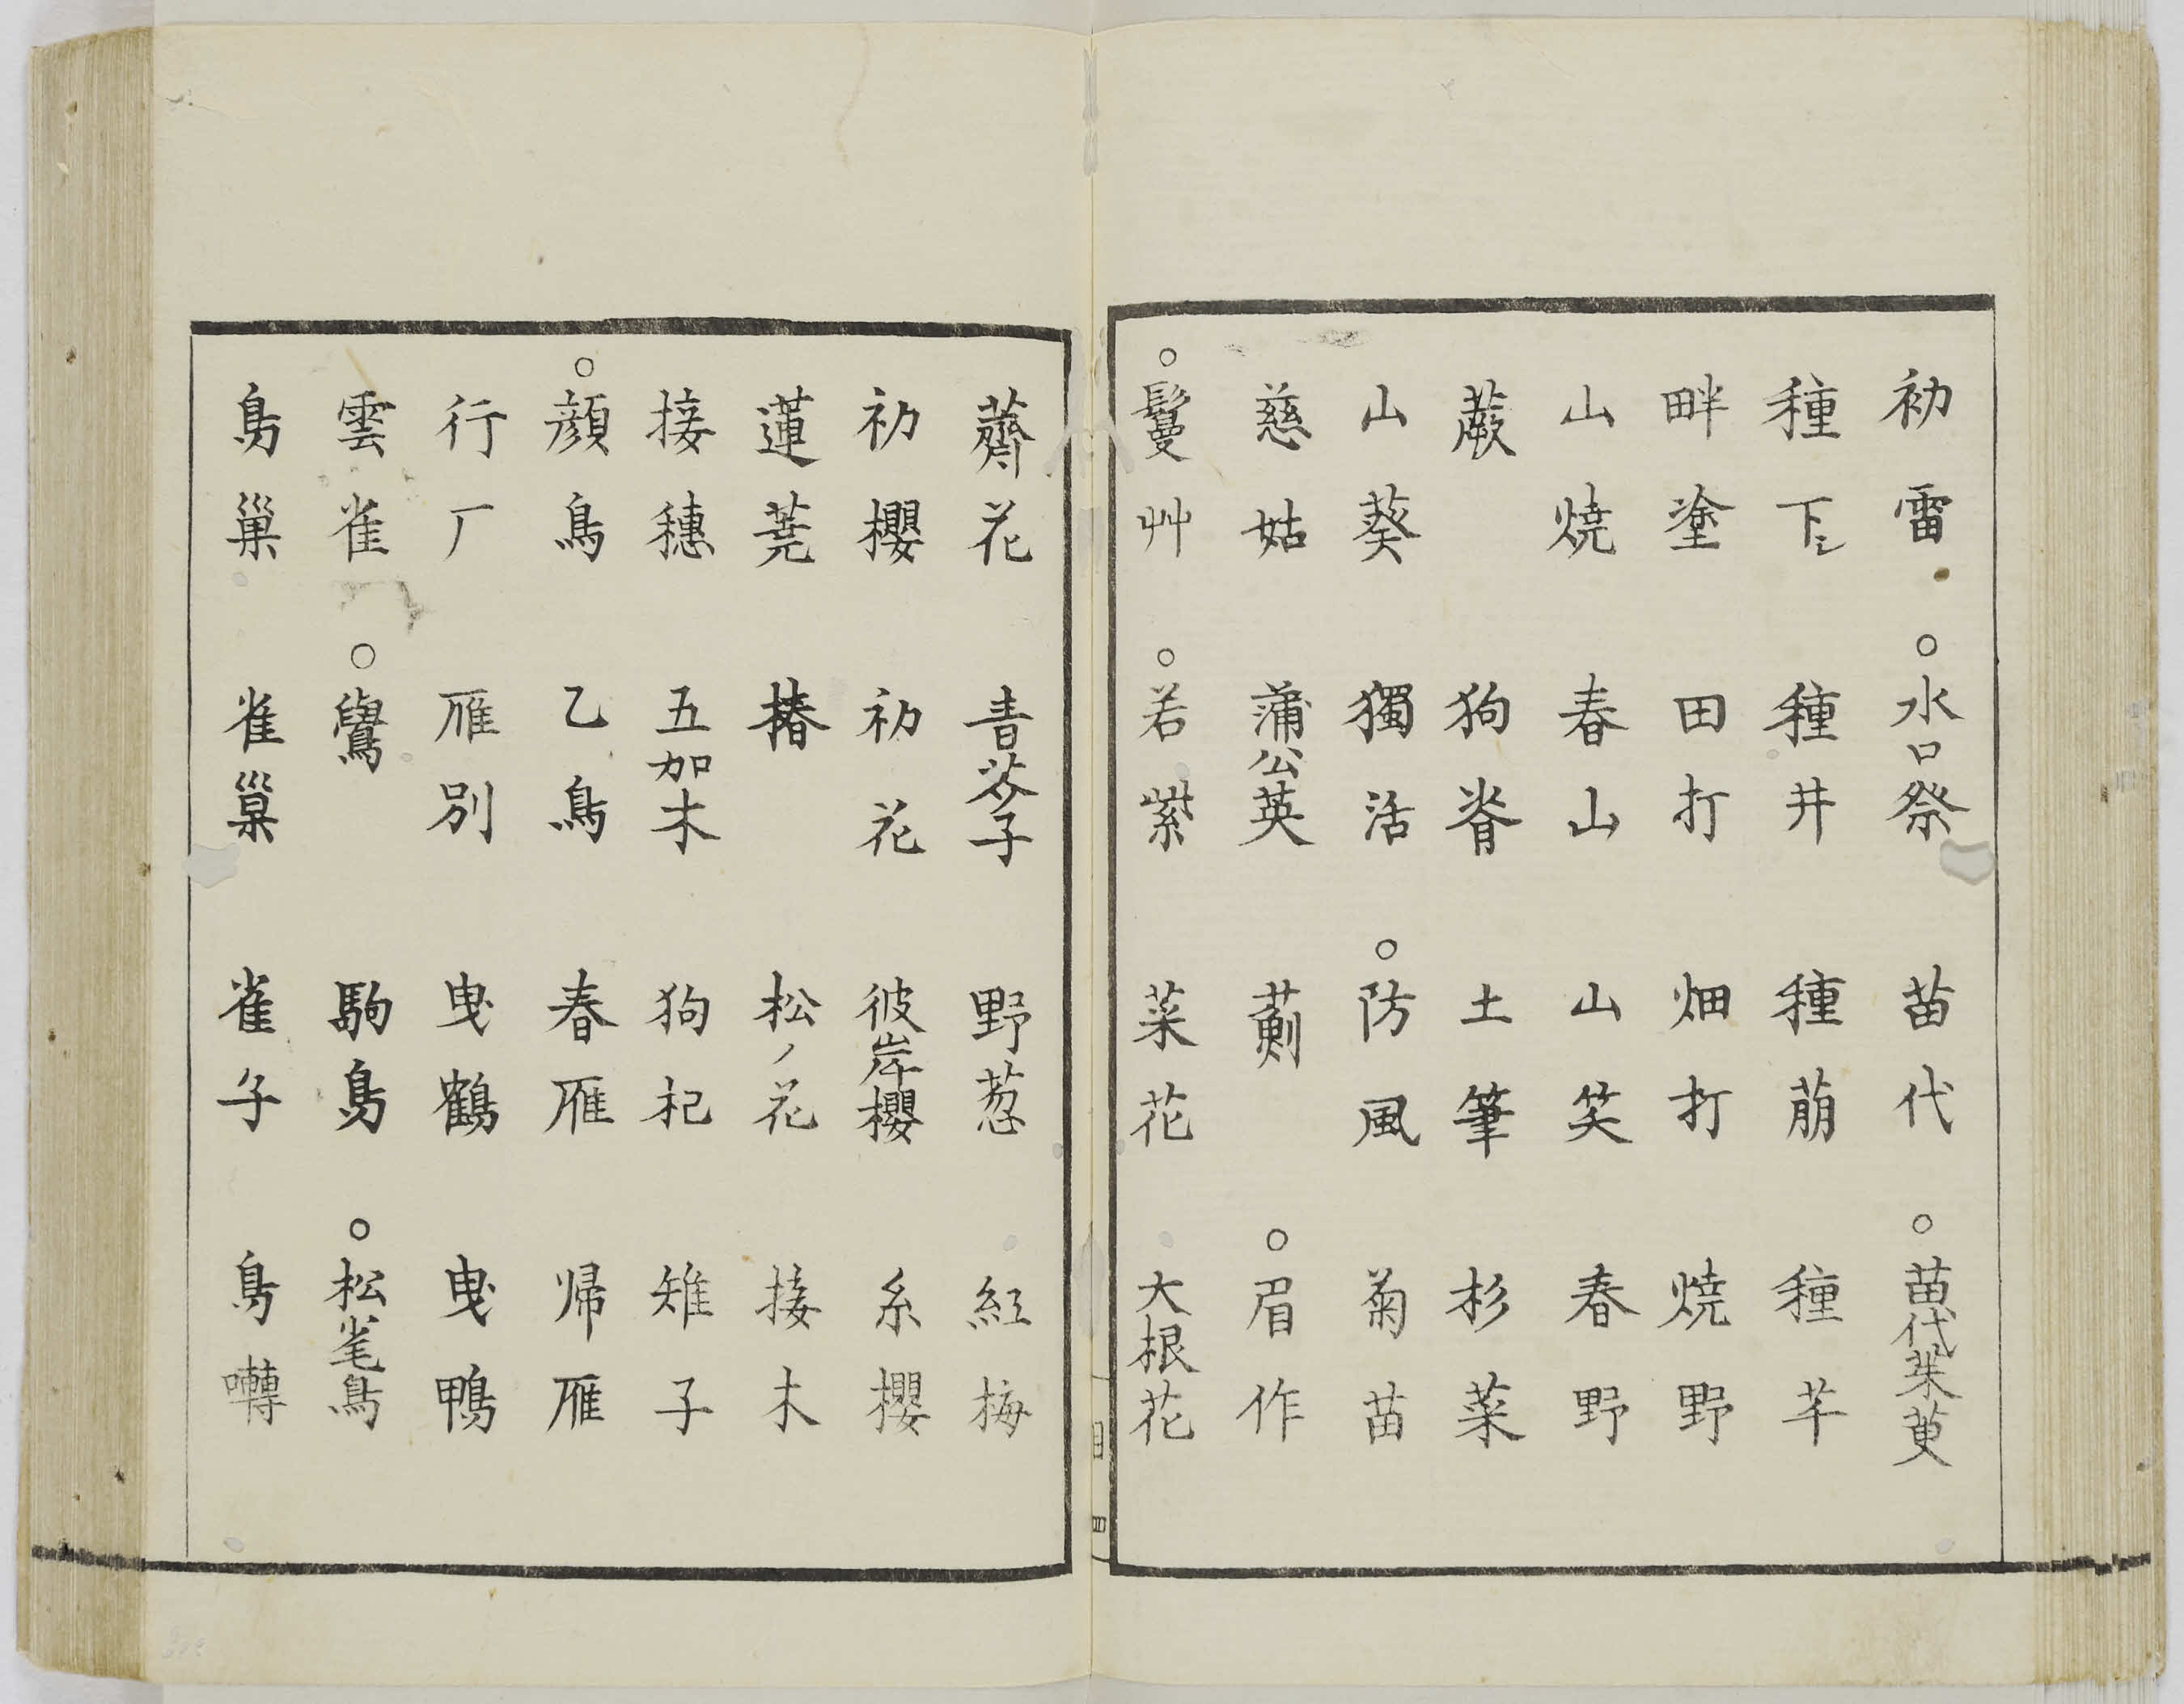 初雷 ○水口祭 苗代 ○苗代茱萸
種下シ 種井 種萠 種芋
畔塗 田打 畑打 焼野
山焼 春山 山笑 春野
蕨 狗脊 土筆 杉菜
山葵 獨活 ○防風 菊苗
慈姑 蒲公英 薊 ○眉作
○鬘艸 ○若紫 菜花 大根花
薺花 青芥子 野葱 紅梅
初櫻 初花 彼岸櫻 糸櫻
蓮葟 椿 松ノ花 接木
接穗 五加木 狗杞 雉子
○顔鳥 乙鳥 春雁 帰雁
行厂 雁別 曳鶴 曳鴨
雲雀 ○鷽 駒鳥 ○松毟鳥
鳥巢 雀巢 雀子 鳥囀